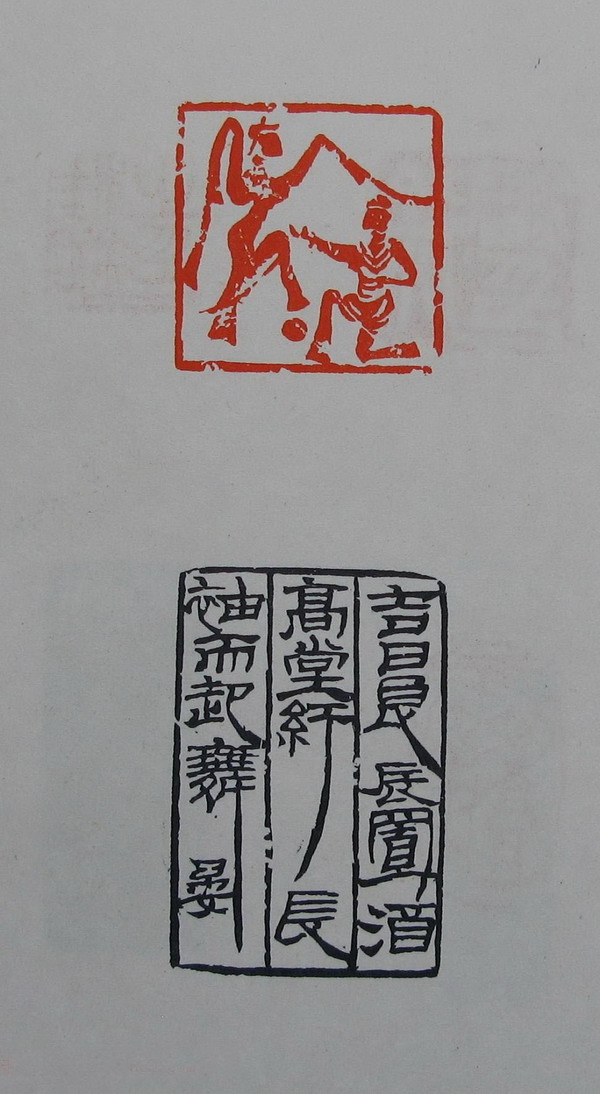 吉日良辰置酒
高堂紆長
袖而起舞 晏